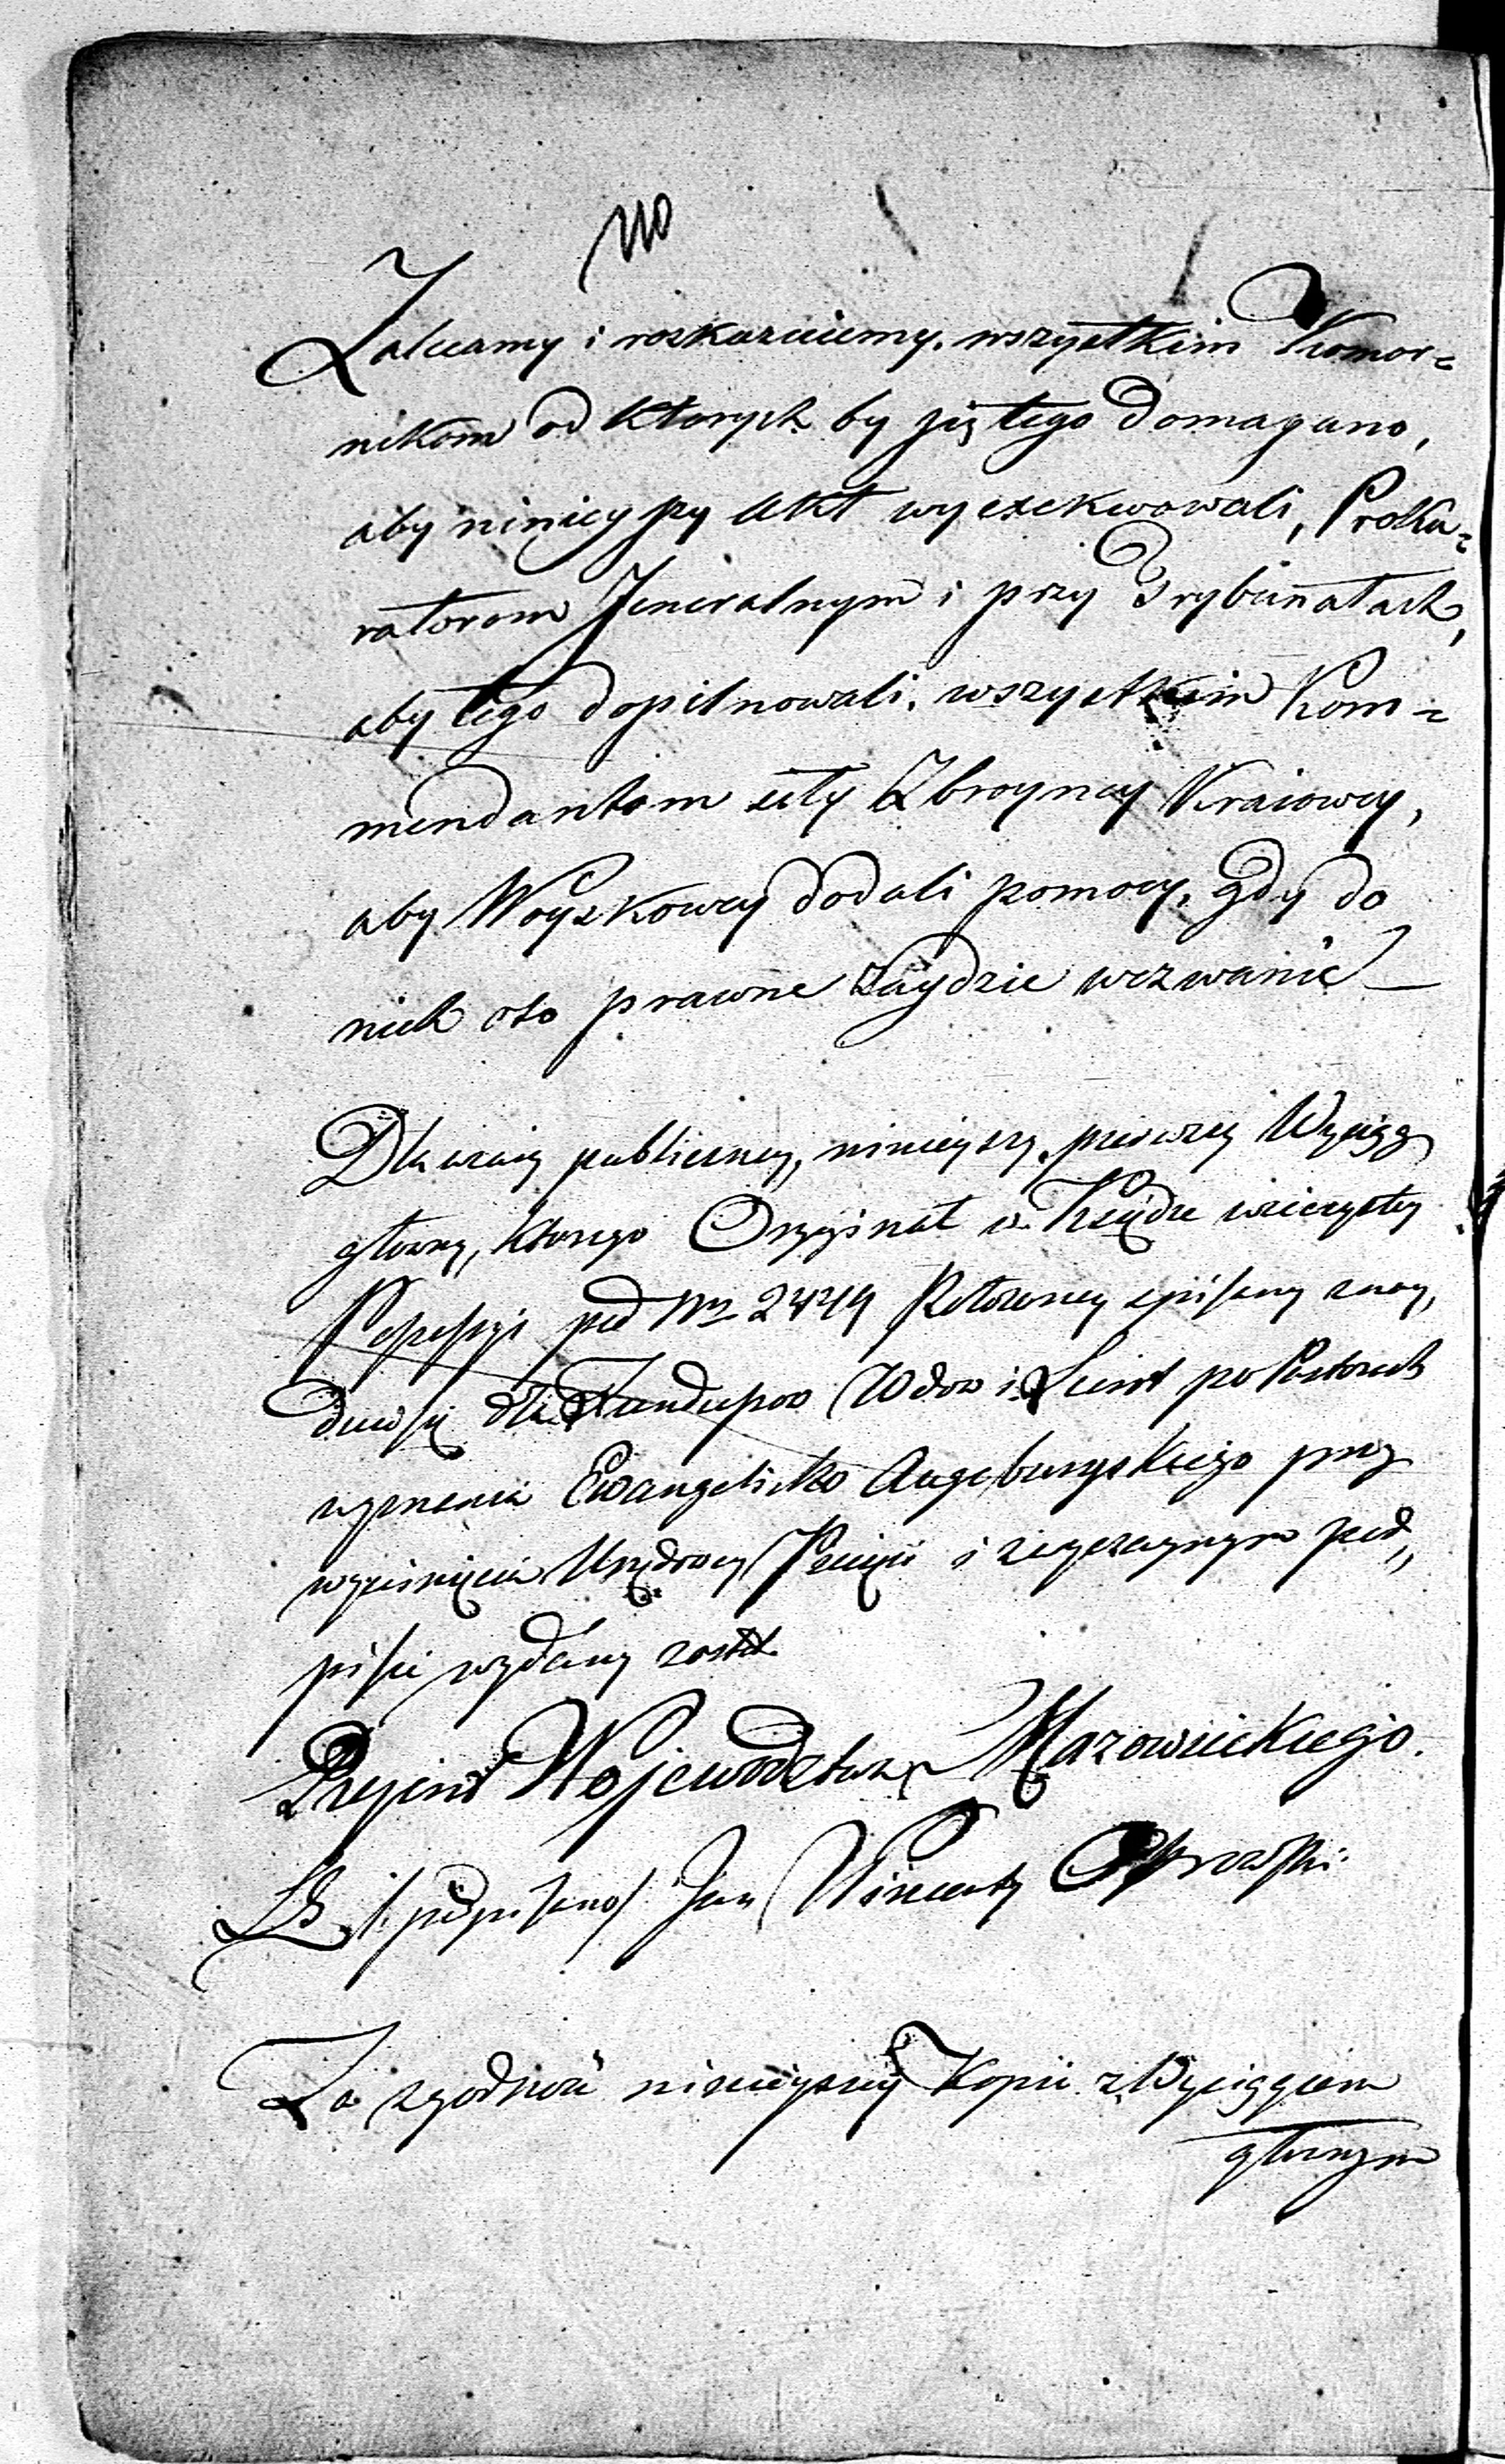 110
Zalecamy i rozkazuiemy, wszystkim Komor=
nikom od ktorych by się tego domagano,
aby ninieyszy Akt wyexekwowali, Proku=
ratorom Jeneralnym i przy Trybunałach,
aby tego dopilnowali, wszystkim Kom=
mendantom siły Zbroyney Kraiowey,
aby Woyskowey dodali pomocy, gdy do
nich oto prawne zaydzie wezwanie —
Dla wiary publiczney, ninieyszy pierwszy Wyciąg
głowny, ktorego Oryginał w Księdze wieczystey
Possessyi pod Nr 2449 Położoney spisany znay„
duie się dla Funduszow Wdow i Sierot po Pastorach
wyznania Ewangelicko Augsburgskiego przy
wyciśnięciu Urzędowey Pieczęci i zwyczaynym pod„
pisie wydany został.
Rejent Województwa Mazowieckiego.
LS. /:podpisano/ Jan Wincenty
Za zgodność ninieyszey Kopii z Wyciągiem
głownym